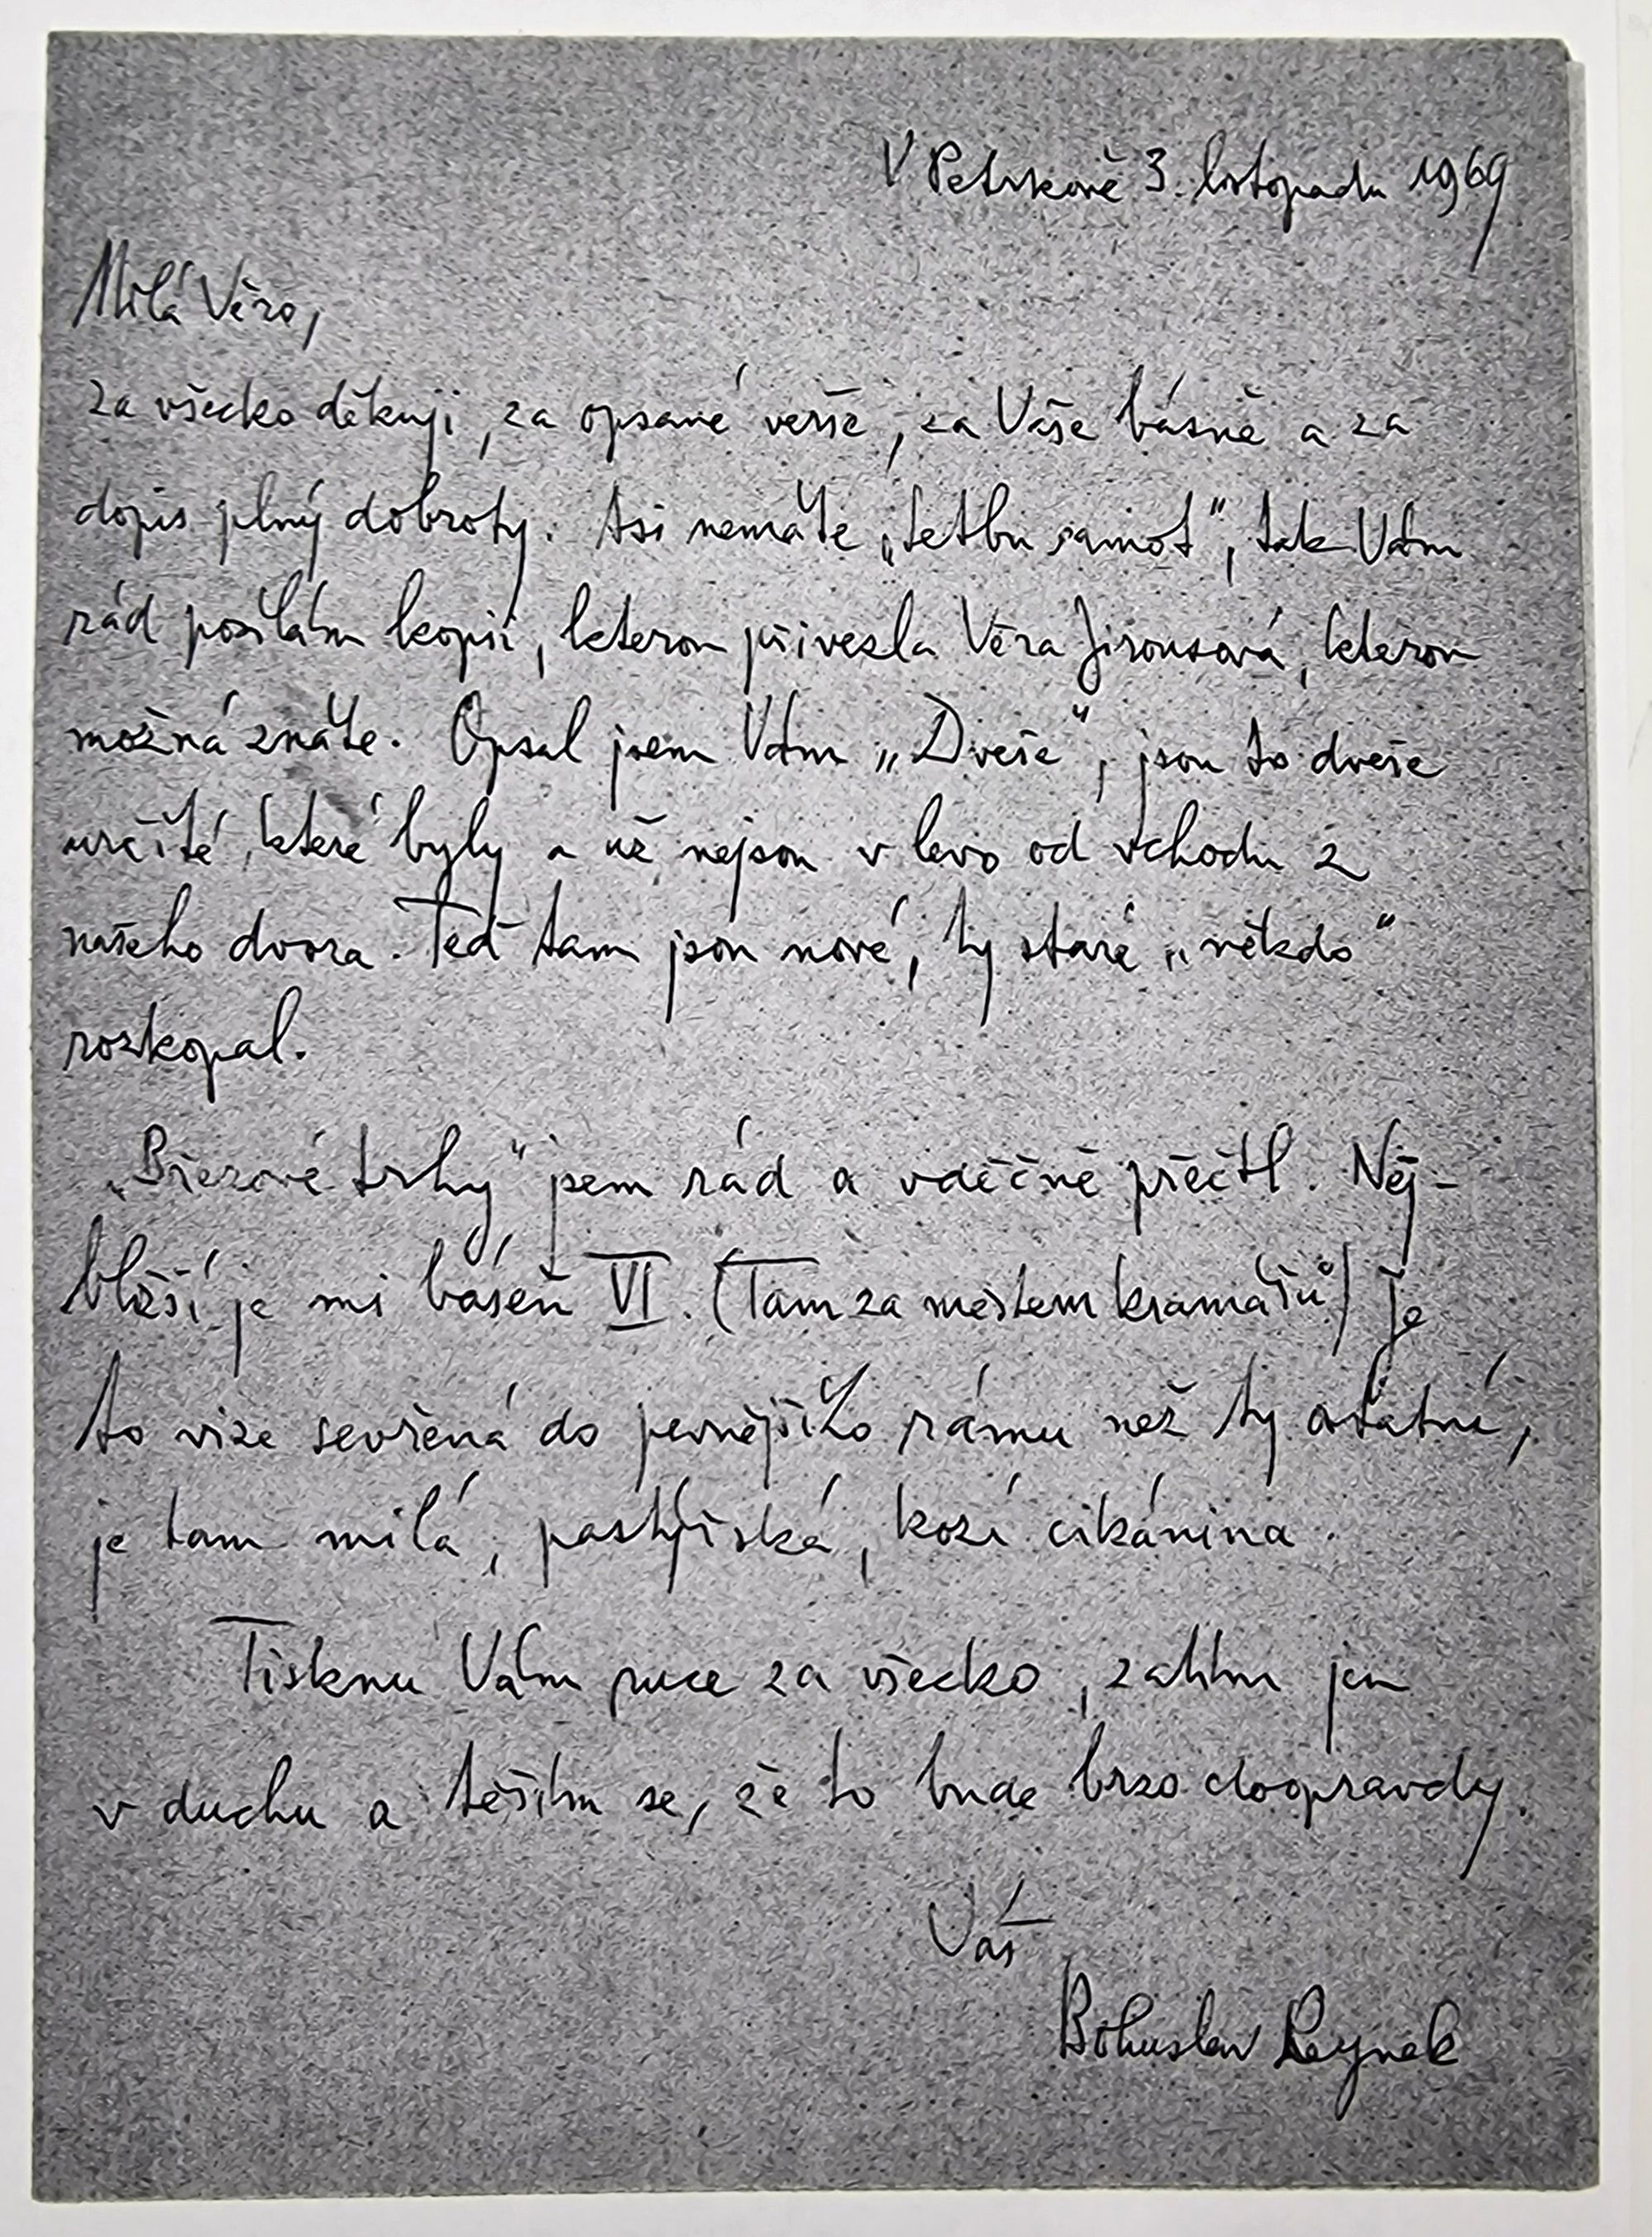 V Petrkově 3. listopadu 1969
Milá Věro,
za všecko děkuji, za opsané verše, za Vaše básně a za
dopis plný dobroty. Asi nemáte „Setbu samot“, tak Vám
rád posílám kopii, kterou přivezla Věra Jirousová, kterou
možná znáte. Opsal jsem Vám „Dveře“, jsou to dveře
určité, které byly a už nejsou v levo od vchodu z
našeho dvora. Teď tam jsou nové, ty staré „někdo“
rozkopal.
„Březové trhy“ jsem rád a vděčně přečtl. Nej-
bližší je mi báseň VI. (Tam za městem kramářů) Je
to vize sevřená do pevnějšího rámu než ty ostatní,
je tam milá, pastýřská, kozí cikánina.
Tisknu Vám ruce za všecko, zatím jen
v duchu a těším se, že to bude brzo doopravdy.
Váš
Bohuslav Reynek